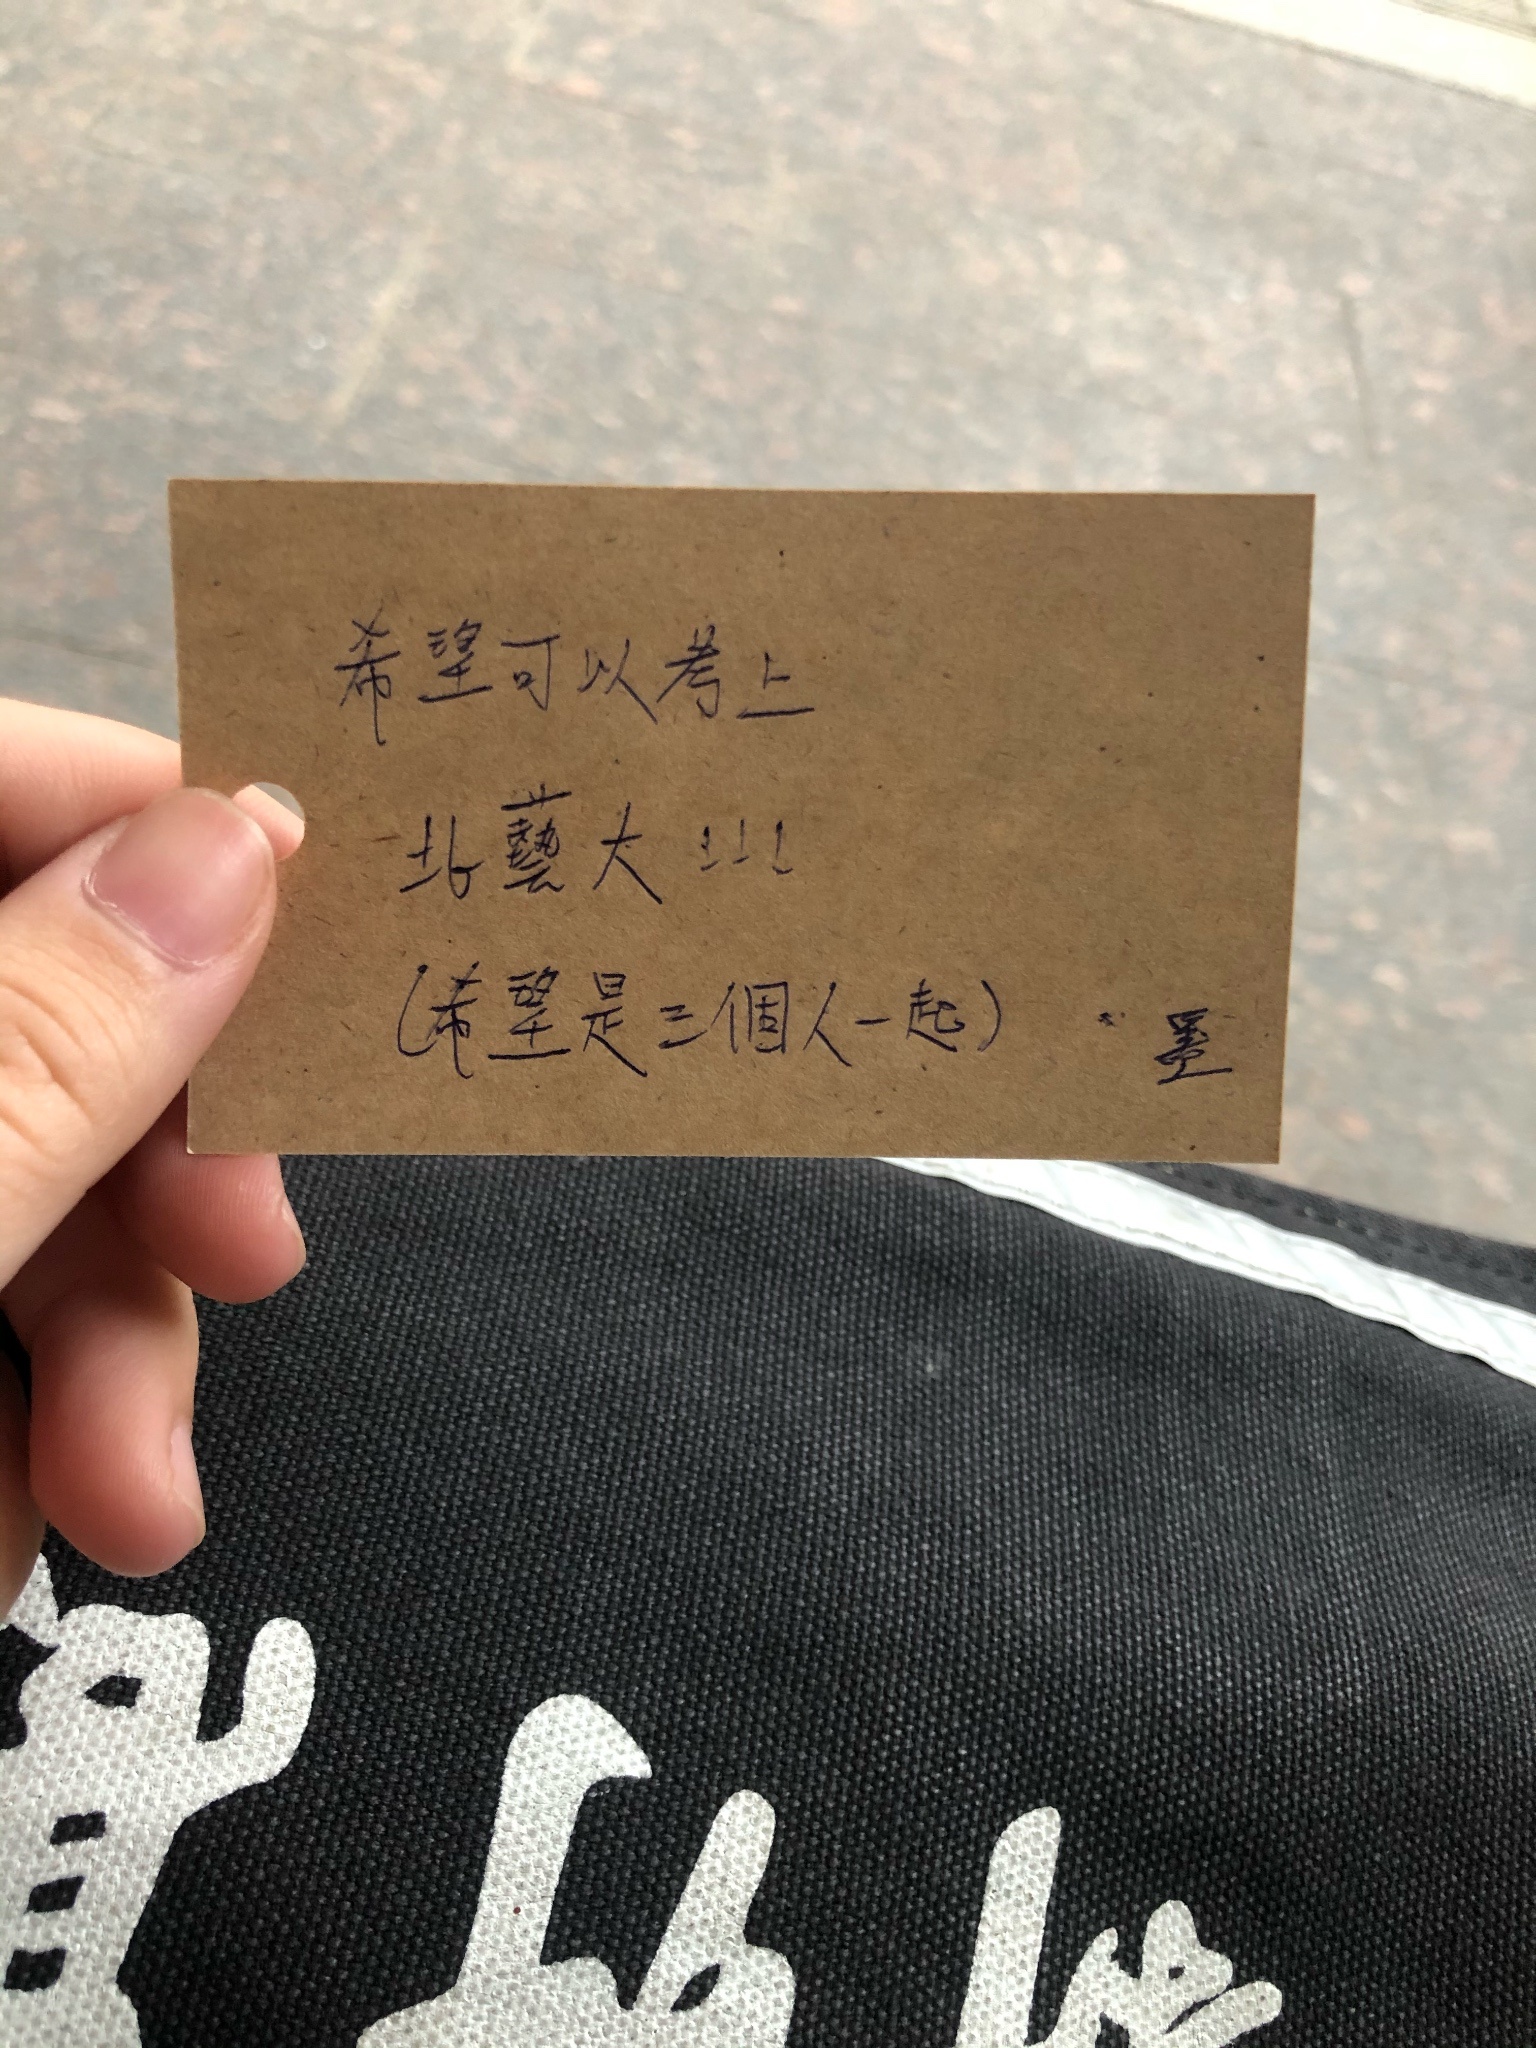 希望可以考上
北藝大!!!
(希望是三個人一起)
墨